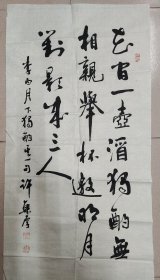 花间一壶酒独酌无
相亲举杯邀明月
对影成三人
李白月下独酌